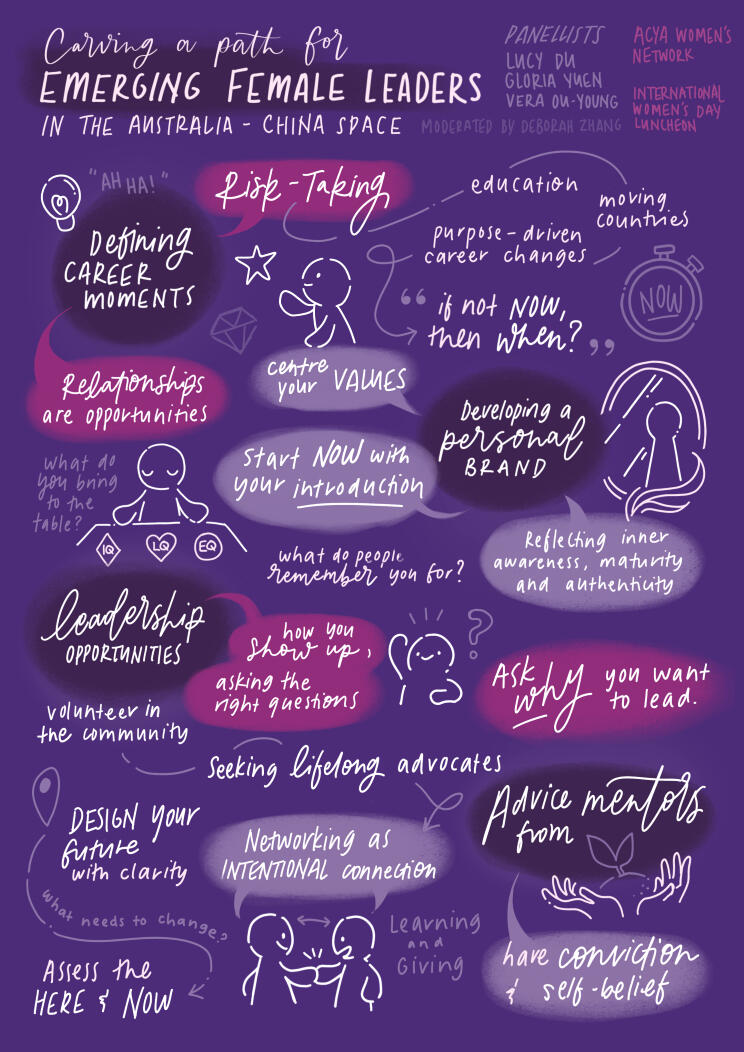 Carving a path for
EMERGING FEMALE LEADERS
IN THE AUSTRALIA - CHINA SPACE
PANELLISTS
LUCY DU
GLORIA YUEN
VERA OU-YOUNG
MODERATED BY DEBORAH ZHANG
ACYA WOMEN'S
NETWORK
INTERNATIONAL
WOMEN'S DAY
LUNCHEON
"AH HA!"
Defining
CAREER
MOMENTS
Risk-Taking
education
moving
countries
purpose-driven
career changes
"if not NOW,
then when?"
NOW
Relationships
are opportunities
centre
your VALUES
Developing a
personal
BRAND
Start NOW with
your introduction
what do
you bring
to the
table?
IQ
LQ
EQ
what do people
remember you for?
Reflecting inner
awareness, maturity
and authenticity
leadership
OPPORTUNITIES
how you
show up,
asking the
right questions
?
Ask
why you want
to lead.
volunteer in
the community
Seeking lifelong advocates
DESIGN your
future
with clarity
Networking as
INTENTIONAL connection
Advice
from mentors
what needs to change?
Learning
and
Giving
Assess the
HERE & NOW
have conviction
& self-belief